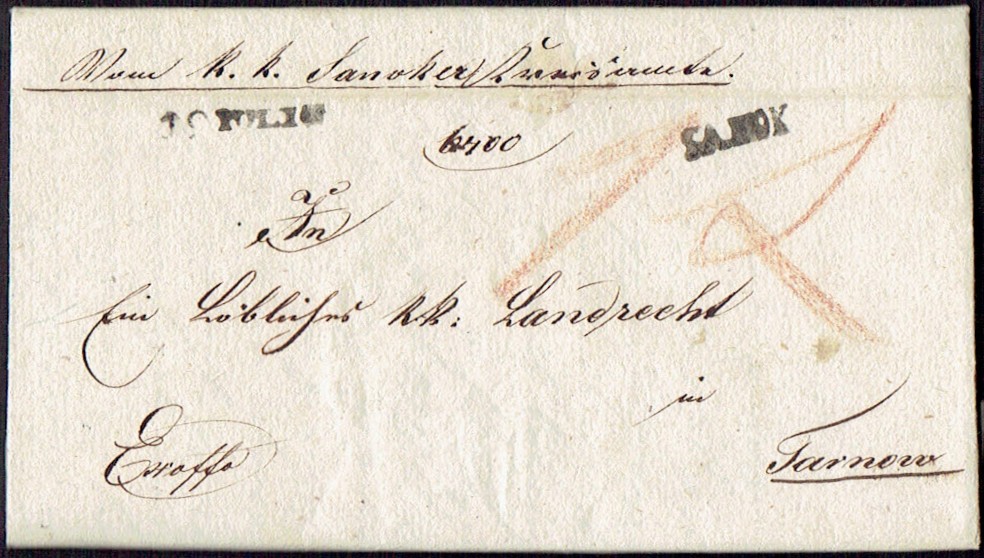 Vom k. k. Sanoker Kreisamte.
19 IULIUS SANOK
6400
An
Ein Löbliches kk: Landrecht
in
Tarnow